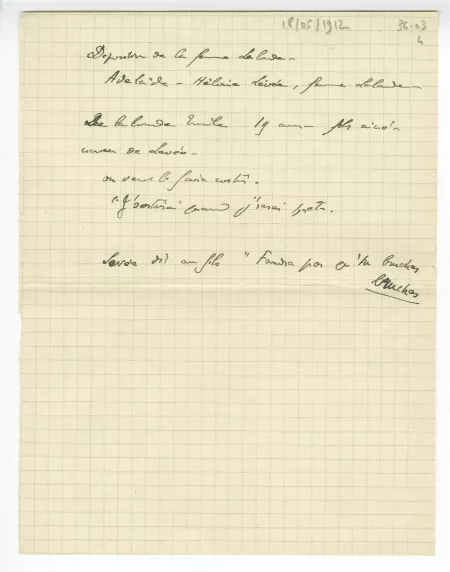 18/05/1912
36-03
4
Déposition de la femme Lalande -
Adelaïde - Héloïse Levée, femme Lalande -
Lalande Emile 19 ans - fils
neveu de Levée -
on veut le faire
"J'sortirai quand j'serai prêt.
Levée dit au fils "Faudra pas qu'tu